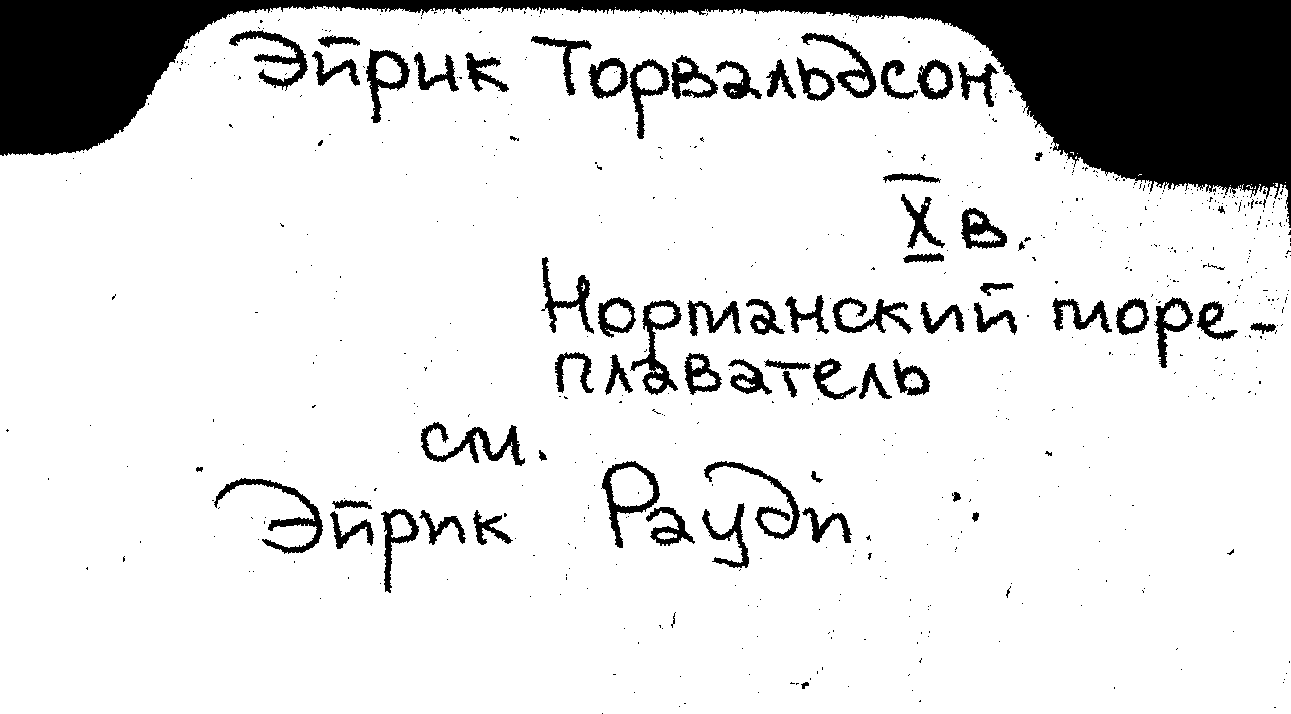 Эйрик Торвальдсон
X в.
Норманский море-
плаватель
см.
Эйрик Рауди